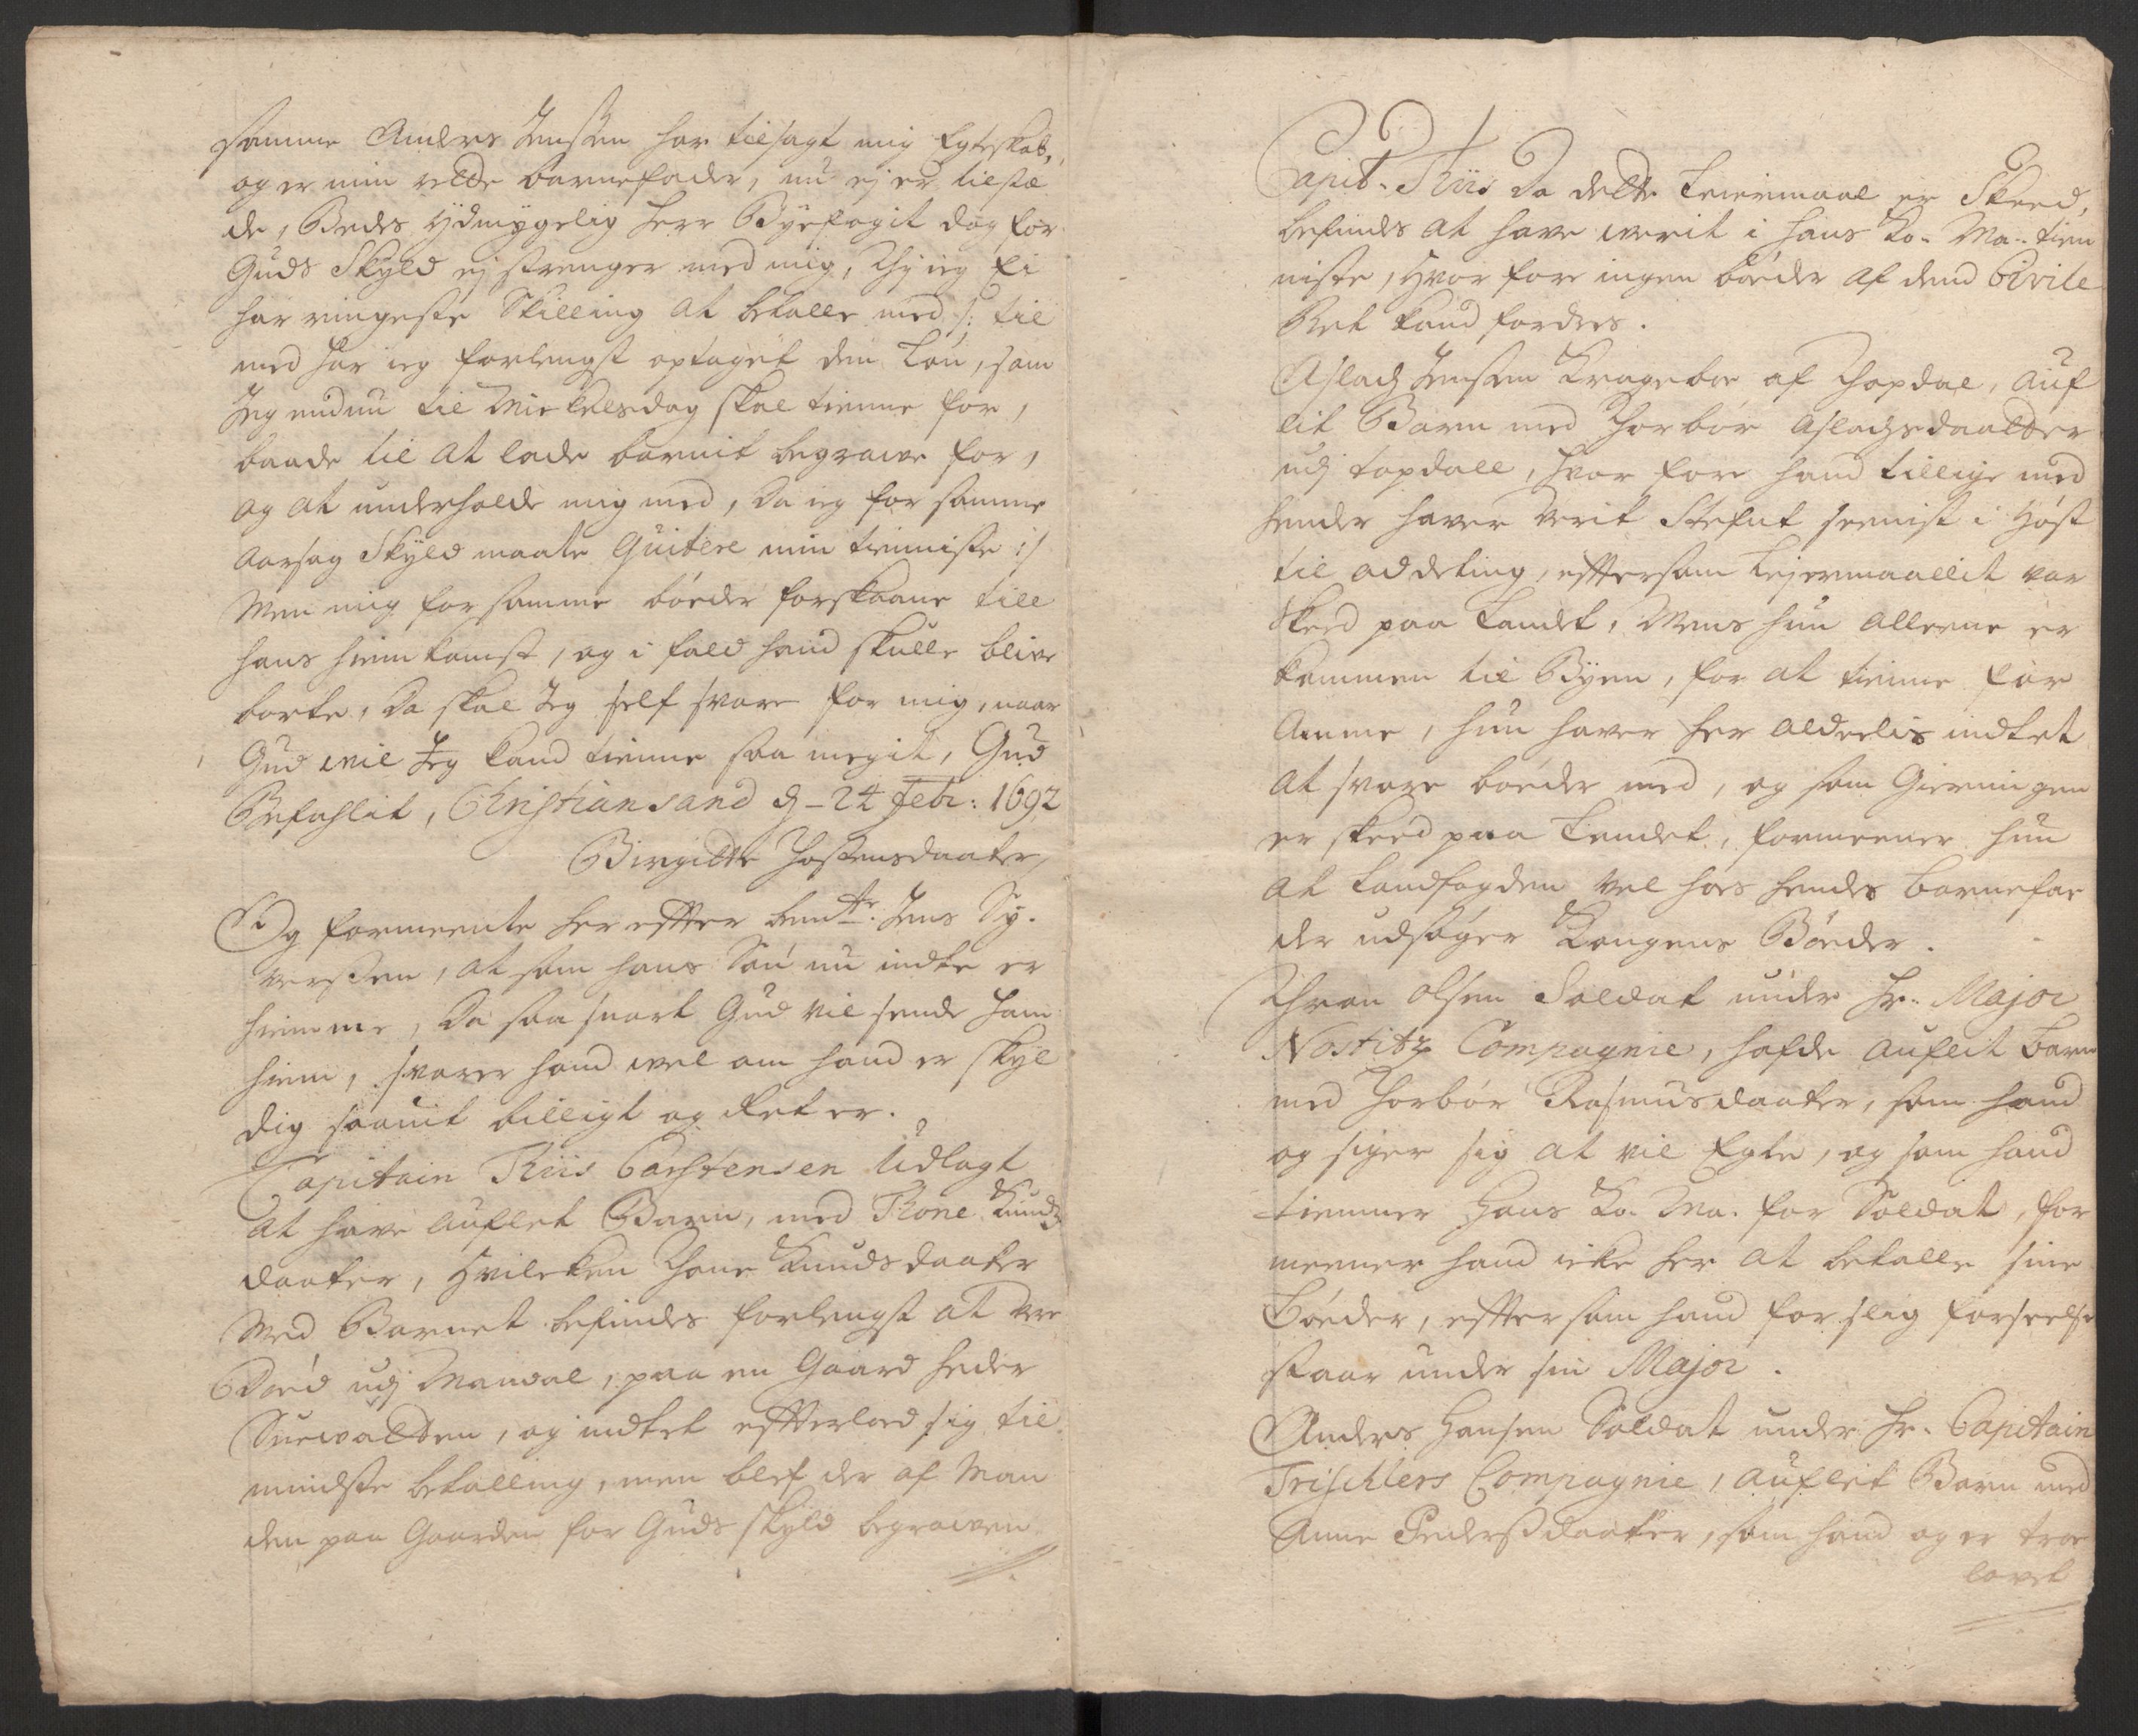 samme Anders Jensen har tilsagt mig Egteskab,
og er min rette barnefader, nu ej er tilstæ
de, Bedes ydmygelig Herr Byefogit dog for
Guds Skyld ej strenger med mig, Thj ieg Ei
har ringeste Skilling at betalle med /: til
med har ieg forlengst optaget den Løn, som
Jeg endnu til Mickelsdag skal tienne for,
baade til at lade barnit begrawe for,
og at underholde mig med, da ieg for samme
aarsag Skyld maate Quitere min tienniste :/
Men mig for samme bøder forskaane till
hans hiemkomst, og i fald hand skulle blive
borte, da skal Jeg self svare for mig, naar
Gud will Jeg kand tienne saa megit, Gud
Befahlit, Christiansand d- 24 Febr: 1692
Birgitte Tostensdaater,
Og formeente her effter bemte: Jens Sy-
versen, at som hans Søn nu indte er
hiemme, da saa snart Gud vil sende ham
hiem, svarer hand wel om hand er skyl
dig saavit billigt og Ret er.
Capitain Thiis Carstensen Udlagt
at have auflet Barn, med Thone Knuds
daater, Hvilcken Thone Knudsdaater
Med Barnet befindes forlengst at vere
Død udj Mandal, paa en Gaard heder
og indtet effterlod sig til
mindste betalling, men blef der af Man
den paa Gaarden for Guds skyld begrawen
Capit. Thiis da dette Leiermaal er Skeed,
befindes at have werit i hans Ko. Ma. tien
niste, hvor fore ingen bøder af dend Civile
Ret kand fordres.
Aslach Jensen Krageboe af Thopdal, auf
lit Barn med Thorbør Aslachsdaatter
udj topdall, hvor fore hand tillige med
hender haver verit Stefnt seenist i Høst
til addeting, effersom Lejermaallit var
Skeed paa Landet, Mens hun alleene er
kommen til Byen, for at tienne for
Amme, hun haver her alderlis indtet
at svare bøder med, og som Gierningen
er skeed paa Landet, formeener hun
at Landfogden vel hos hendes barnefa
der udsøger Kongens Bøder.
Thron Olsen Soldat under Hr. Major
Nostitz Compagnie, hafde auflit barn
med Thorbør Rasmusdaater, som hand
og siger sig at vil Egte, og som hand
tienner Hans Ko. Ma. for Soldat, for
meener hand icke her at betalle sine
Bøder, effersom hand for slig forseelse
staar under sin Major.
Anders Hansen Soldat under Hr. Capitain
Trischlers Compagnie, auflet Barn med
Anne Pedersdaater, som hand og er troe
lovet